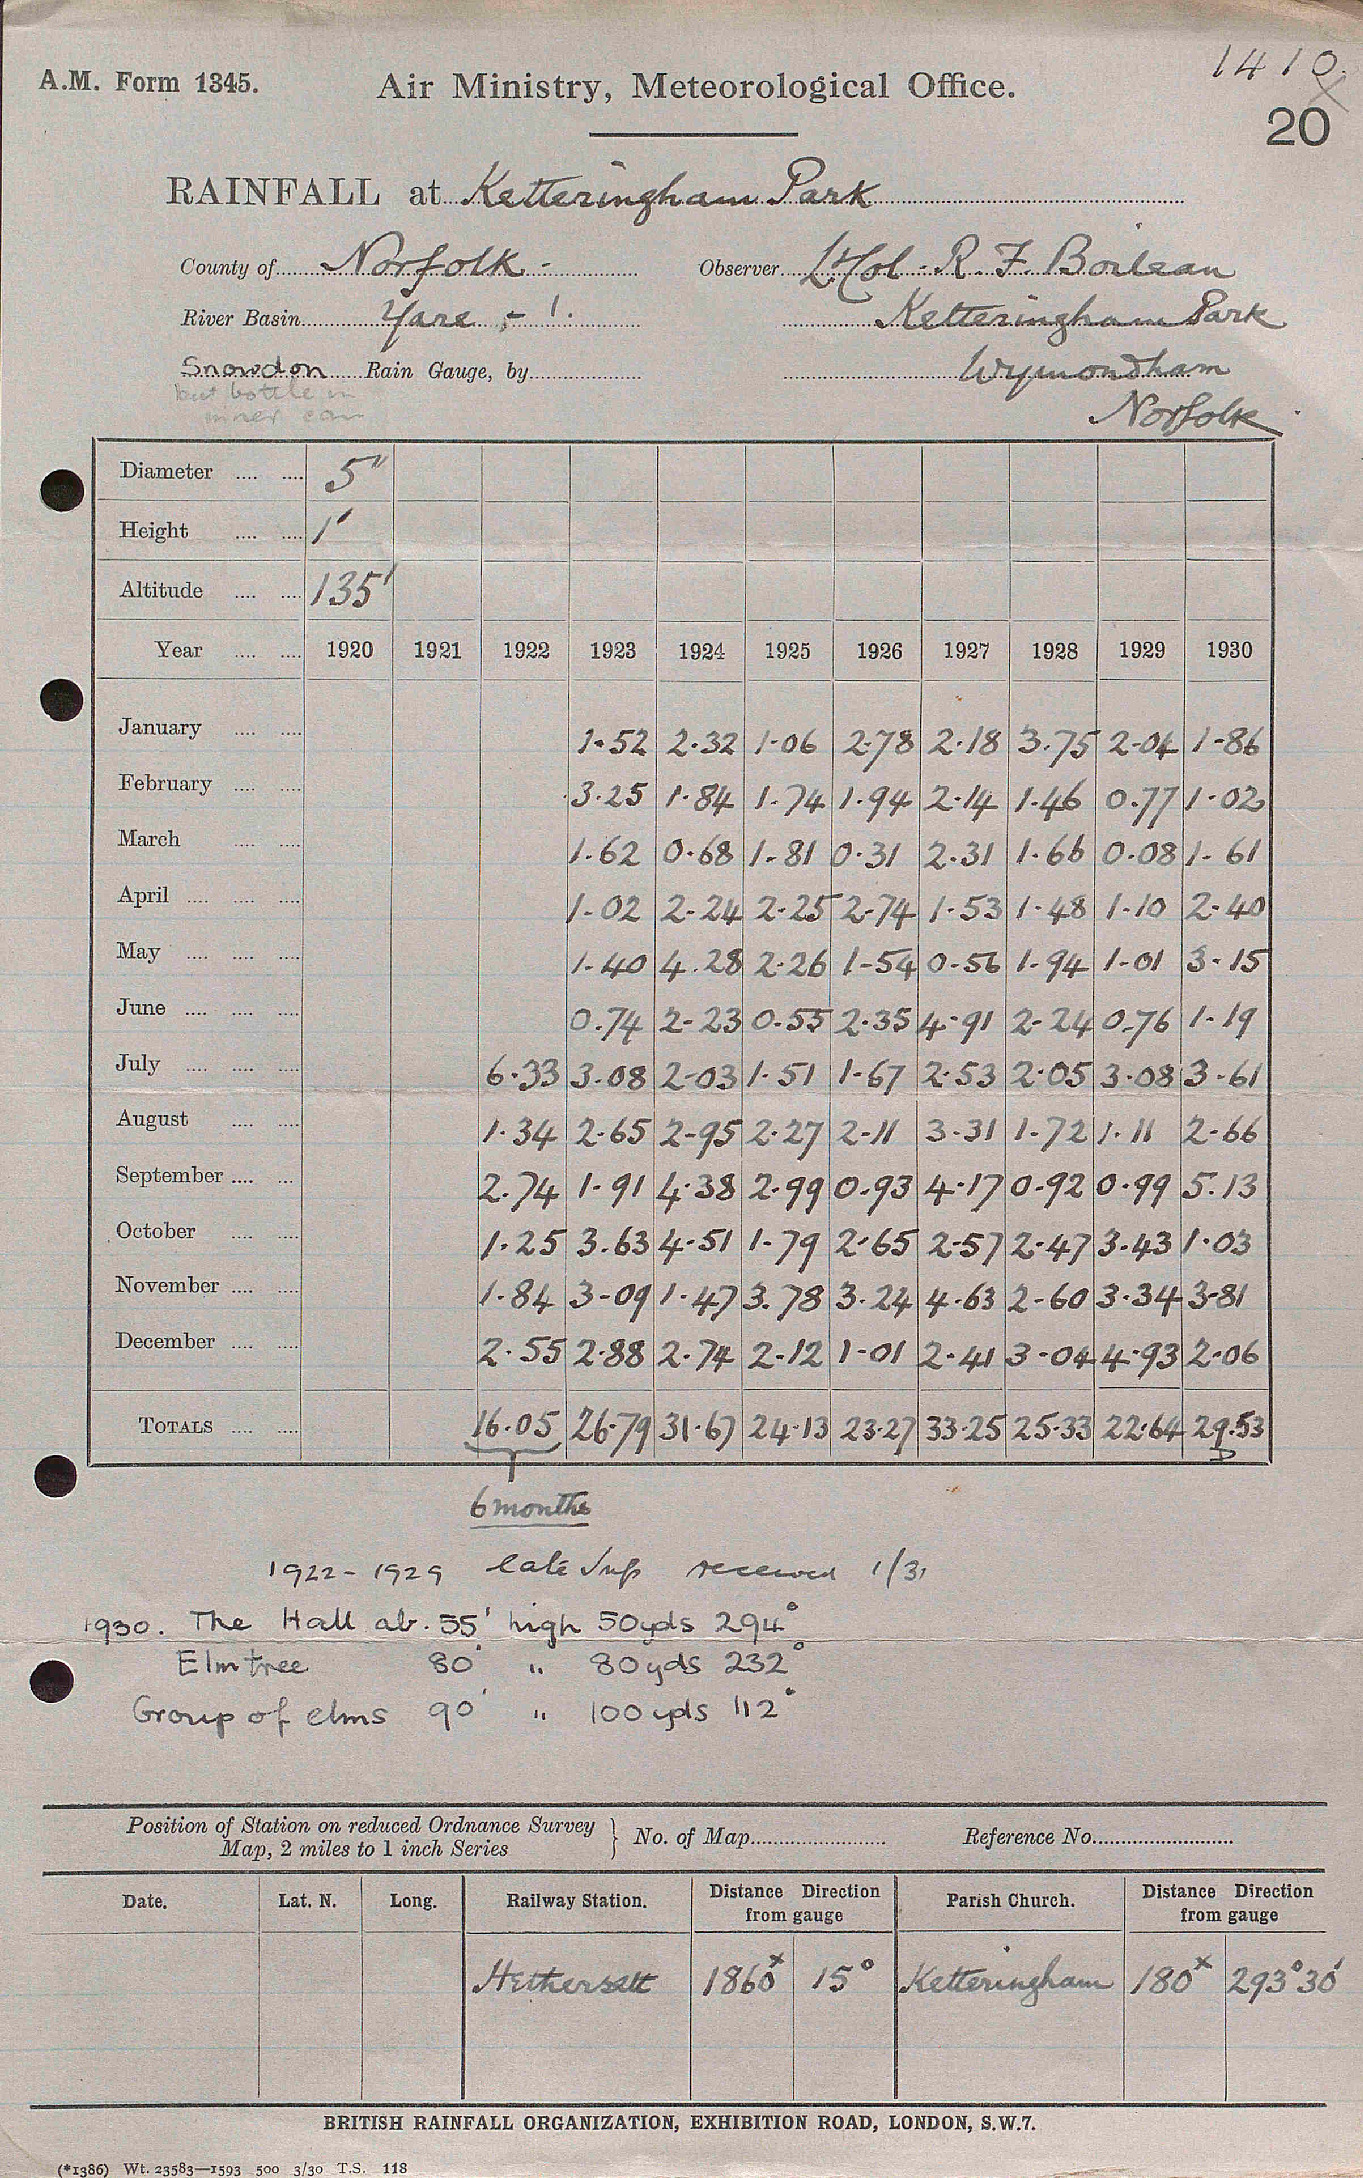 1410
A.M. Form 1345. Air Ministry, Meteorological Office.
20
RAINFALL at Ketteringham Park
County of Norfolk - Observer Lt Col. R. F. Boileau
River Basin Yare - 1. Ketteringham Park
Snowdon Rain Gauge, by Wymondham
but bottle in
inner can Norfolk
Diameter 5"
Height 1'
Altitude 135'
Year 1920 1921 1922 1923 1924 1925 1926 1927 1928 1929 1930
January 1.52 2.32 1.06 2.78 2.18 3.75 2.04 1.86
February 3.25 1.84 1.74 1.94 2.14 1.46 0.77 1.02
March 1.62 0.68 1.81 0.31 2.31 1.66 0.08 1.61
April 1.02 2.24 2.25 2.74 1.53 1.48 1.10 2.40
May 1.40 4.28 2.26 1.54 0.56 1.94 1.01 3.15
June 0.74 2.23 0.55 2.35 4.91 2.24 0.76 1.19
July 6.33 3.08 2.03 1.51 1.67 2.53 2.05 3.08 3.61
August 1.34 2.65 2.95 2.27 2.11 3.31 1.72 1.11 2.66
September 2.74 1.91 4.38 2.99 0.93 4.17 0.92 0.99 5.13
October 1.25 3.63 4.51 1.79 2.65 2.57 2.47 3.43 1.03
November 1.84 3.09 1.47 3.78 3.24 4.63 2.60 3.34 3.81
December 2.55 2.88 2.74 2.12 1.01 2.41 3.04 4.93 2.06
TOTALS 16.05 26.79 31.67 24.13 23.27 33.25 25.33 22.64 29.53
D
6 months
1922 - 1929 late received 1/31
1930. The Hall ab. 55' high 50yds 294°
Elm tree 80' " 80yds 232°
Group of elms 90' " 100yds 112°
Position of Station on reduced Ordnance Survey
Map, 2 miles to 1 inch Series } No. of Map Reference No.
Date. Lat. N. Long. Railway Station. Distance Direction from gauge Parish Church. Distance Direction from gauge
Hethersett 1860x 15° Ketteringham 180x 293°30'
BRITISH RAINFALL ORGANIZATION, EXHIBITION ROAD, LONDON, S.W.7.
(*1386) Wt. 23583—1593 500 3/30 T.S. 118